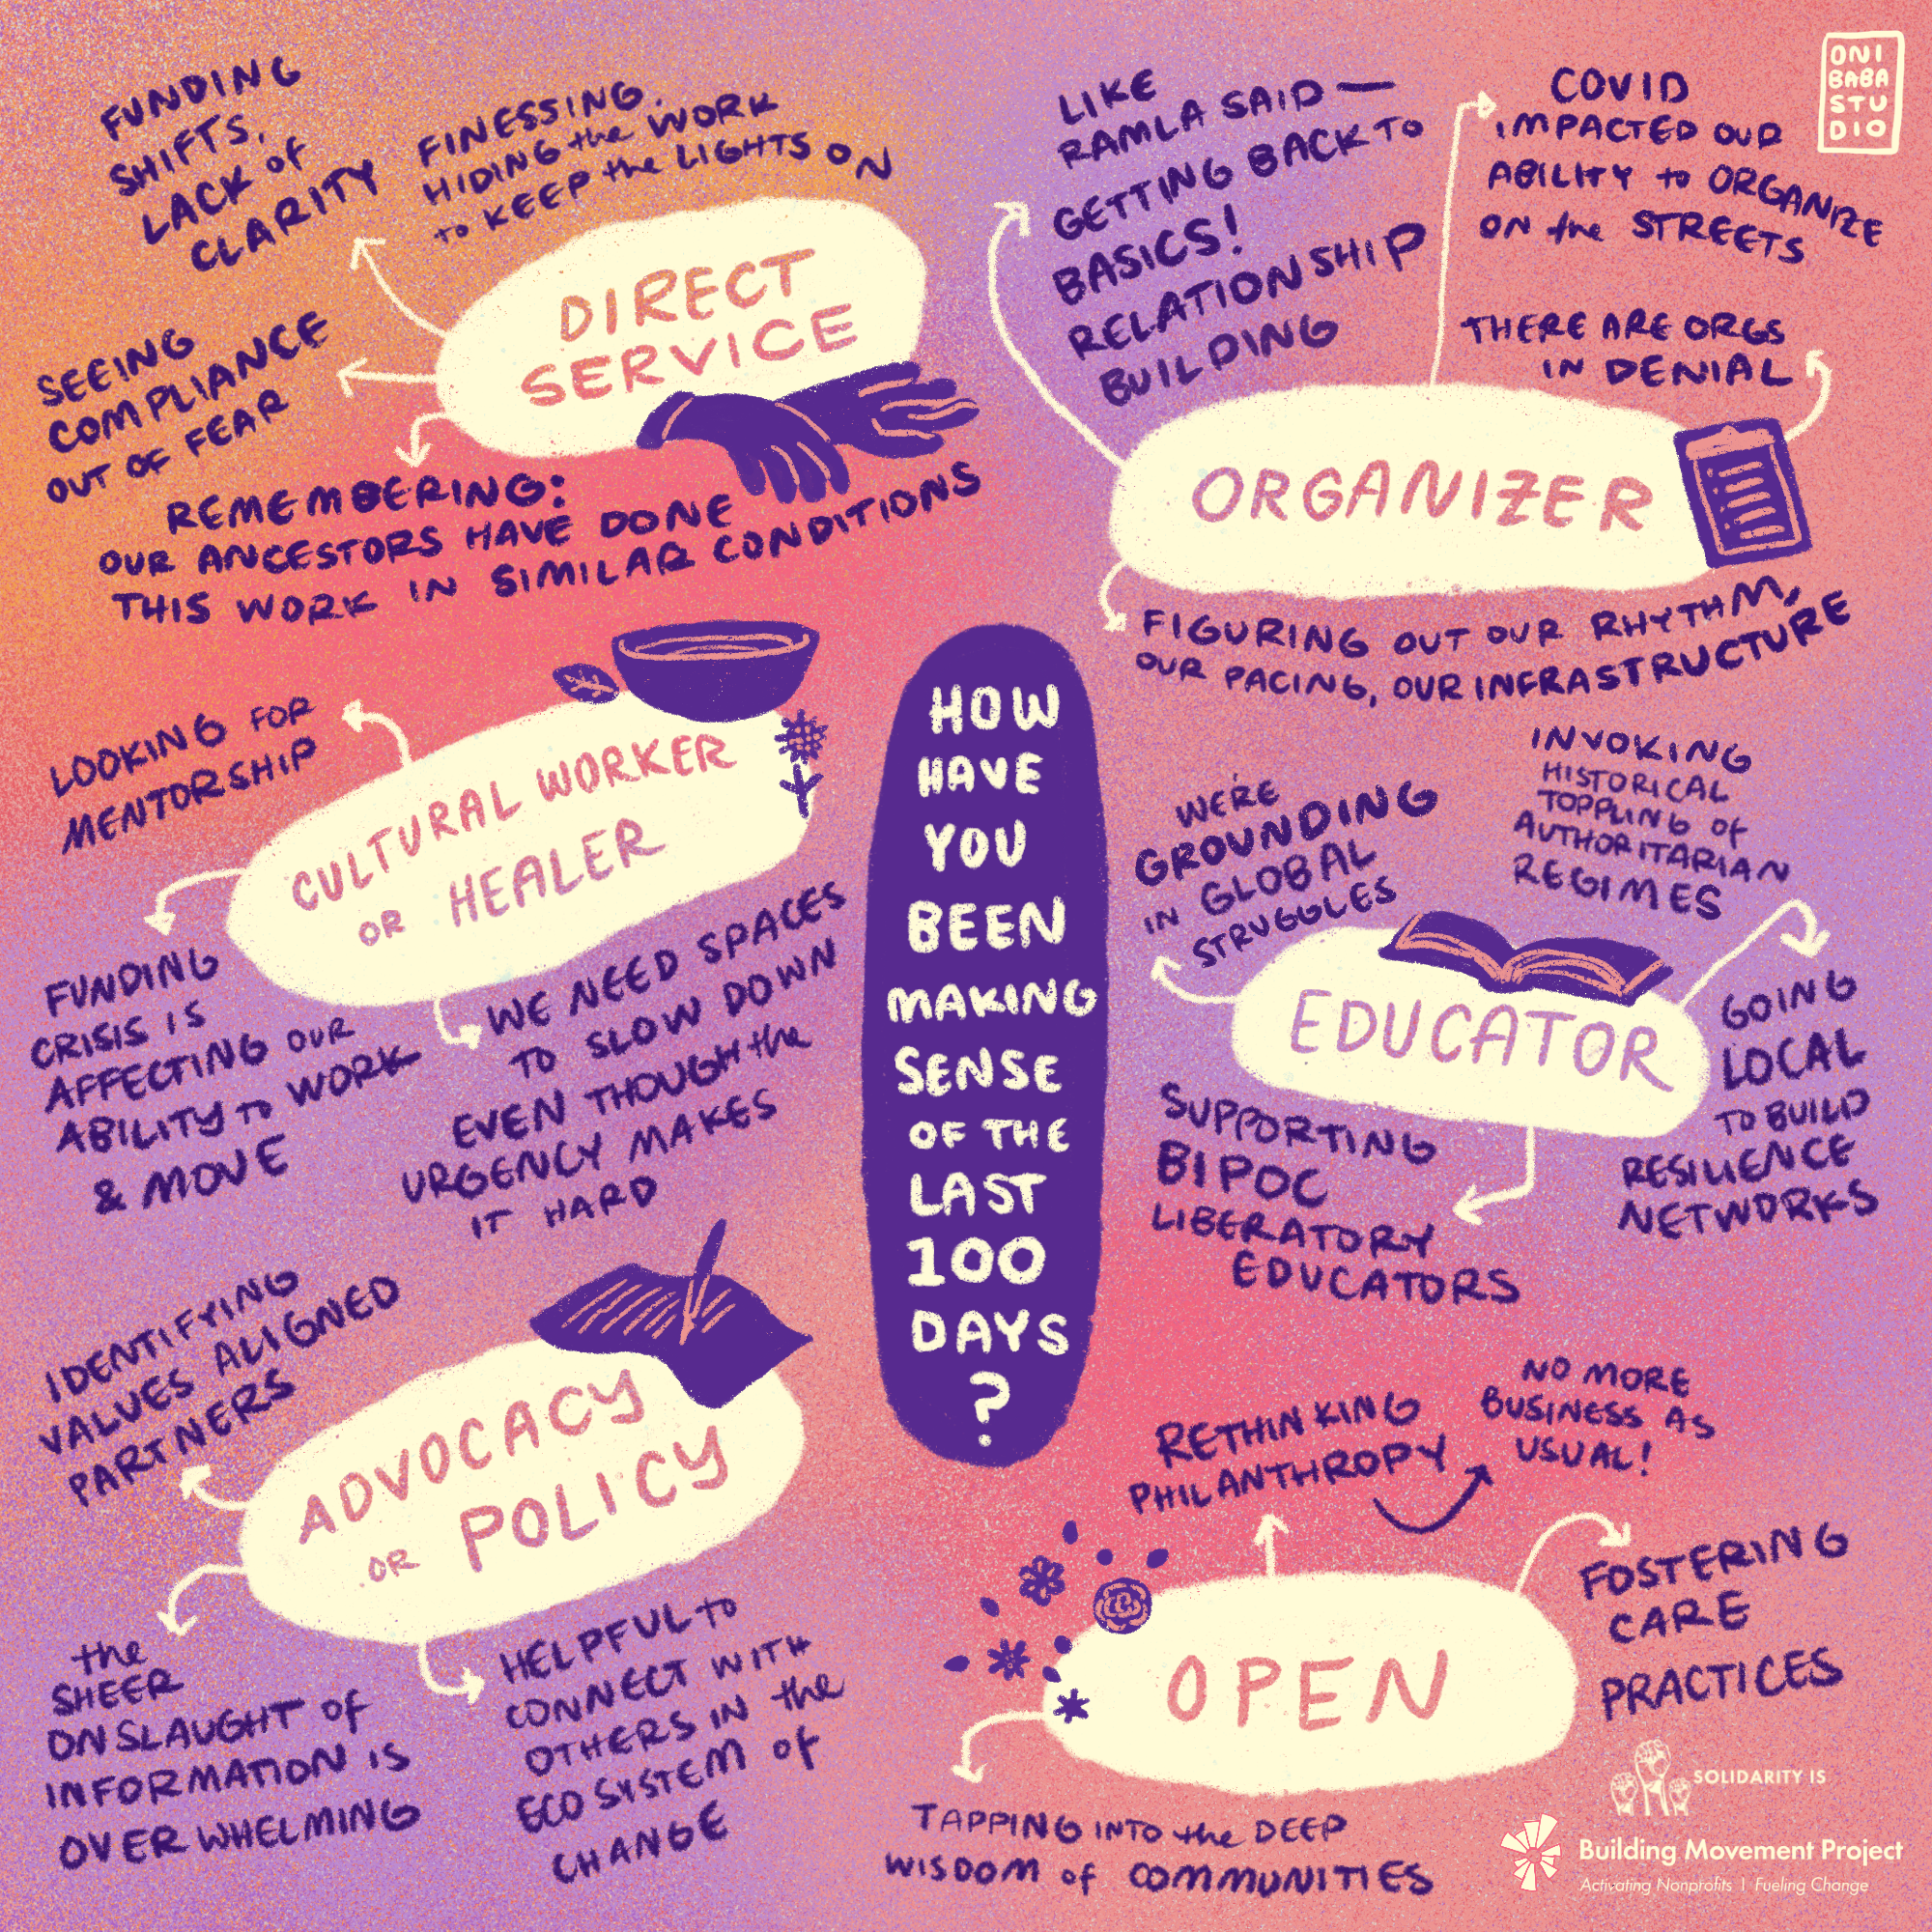 FUNDING
SHIFTS,
LACK of
CLARITY
FINESSING.
HIDING the WORK
to KEEP the LIGHTS ON
DIRECT
SERVICE
SEEING
COMPLIANCE
OUT OF FEAR
REMEMBERING:
OUR ANCESTORS HAVE DONE
THIS WORK IN SIMILAR CONDITIONS
LIKE
RAMLA SAID —
GETTING BACK TO
BASICS!
RELATIONSHIP
BUILDING
COVID
IMPACTED OUR
ABILITY to ORGANIZE
ON the STREETS
ONI
BABA
STU
DIO
THERE ARE ORGS
IN DENIAL
ORGANIZER
FIGURING OUT OUR RHYTHM,
OUR PACING, OUR INFRASTRUCTURE
LOOKING FOR
MENTORSHIP
CULTURAL WORKER
OR HEALER
FUNDING
CRISIS IS
AFFECTING OUR
ABILITY TO WORK
& MOVE
WE NEED SPACES
TO SLOW DOWN
EVEN THOUGH the
URGENCY MAKES
IT HARD
HOW
HAVE
YOU
BEEN
MAKING
SENSE
OF THE
LAST
100
DAYS
?
WE'RE
GROUNDING
IN GLOBAL
STRUGGLES
INVOKING
HISTORICAL
TOPPLING of
AUTHORITARIAN
REGIMES
EDUCATOR
GOING
LOCAL
TO BUILD
RESILIENCE
NETWORKS
SUPPORTING
BIPOC
LIBERATORY
EDUCATORS
IDENTIFYING
VALUES ALIGNED
PARTNERS
ADVOCACY
OR POLICY
the
SHEER
ONSLAUGHT of
INFORMATION IS
OVERWHELMING
HELPFUL TO
CONNECT WITH
OTHERS IN the
ECOSYSTEM of
CHANGE
RETHINKING
PHILANTHROPY
NO MORE
BUSINESS AS
USUAL!
OPEN
FOSTERING
CARE
PRACTICES
TAPPING INTO the DEEP
WISDOM of COMMUNITIES
SOLIDARITY IS
Building Movement Project
Activating Nonprofits | Fueling Change